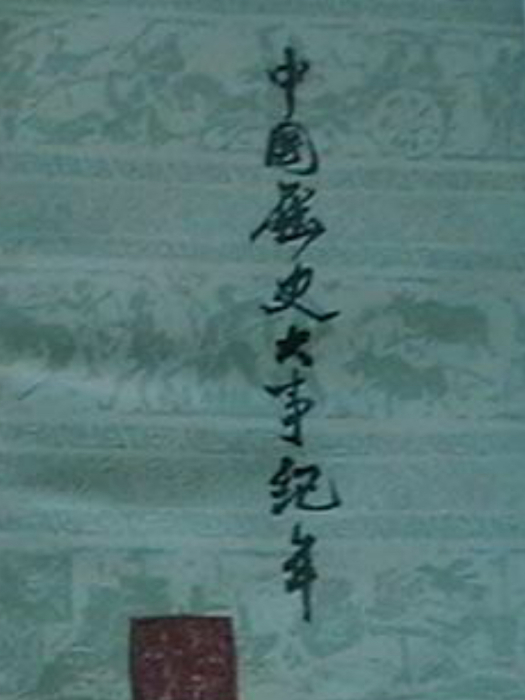 中國歷史大事紀年